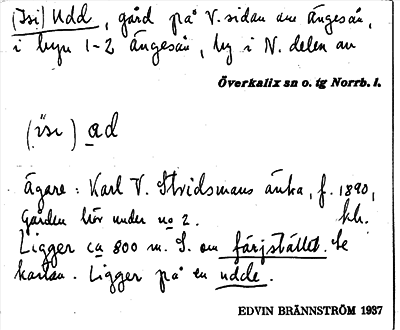 (Isi) Udd, gård på V. sidan om Ängesån,
i byn 1-2 Ängesån, by i N. delen av
Överkalix sn o. tg Norrb. l.
(ïsı) ad
Ägare: Karl V. Stridsmans änka, f. 1890,
Gården hör under no 2. kh.
Ligger ca 800 m. S. om färjstället. Se
kartan. Ligger på en udde.
EDVIN BRÄNNSTRÖM 1937